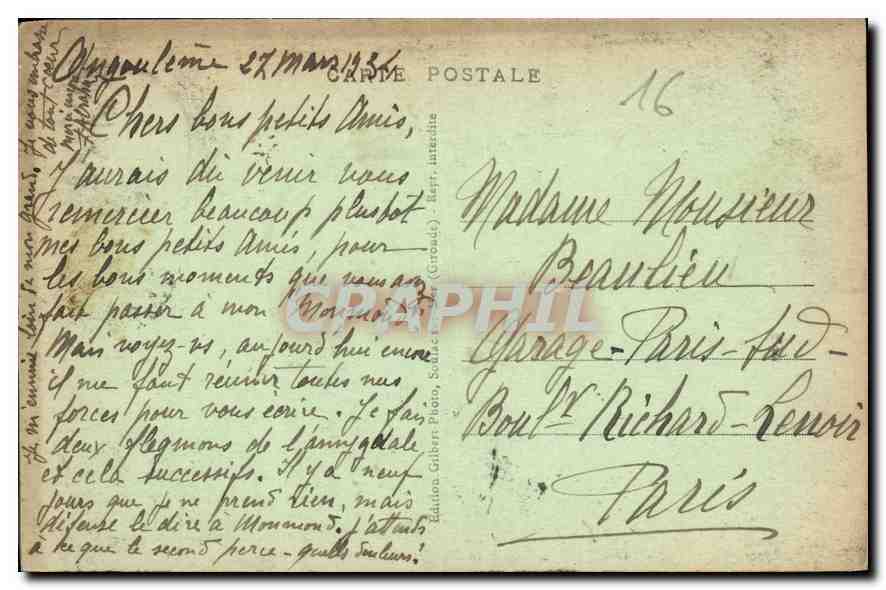 Angoulême 27 Mars 1934
CARTE POSTALE
16
Chers bons petits Amis,
J'aurais dû venir vous
remercier beaucoup plustôt
mes bons petits Amis, pour
les bons moments que vous avez
fait passer à mon Monmond.
Mais voyez-vs, aujourd'hui encore
il me faut réunir toutes mes
forces pour vous écrire. Je fais
deux flegmons de l'amygdale
et cela successifs. Il y a neuf
jours que je ne prend rien, mais
défense le dire à Monmond. J'attends
à ce que le second perce - quelles douleurs!
Je m'ennuie loin de mon grand. Je vous embrasse
de tout cœur
Edition Gilbert Photo, Soulac (Gironde) - Repr. interdite
Madame Monsieur
Beaulieu
Garage-Paris-Sud-
Boulr Richard-Lenoir
Paris
CRAPHIL